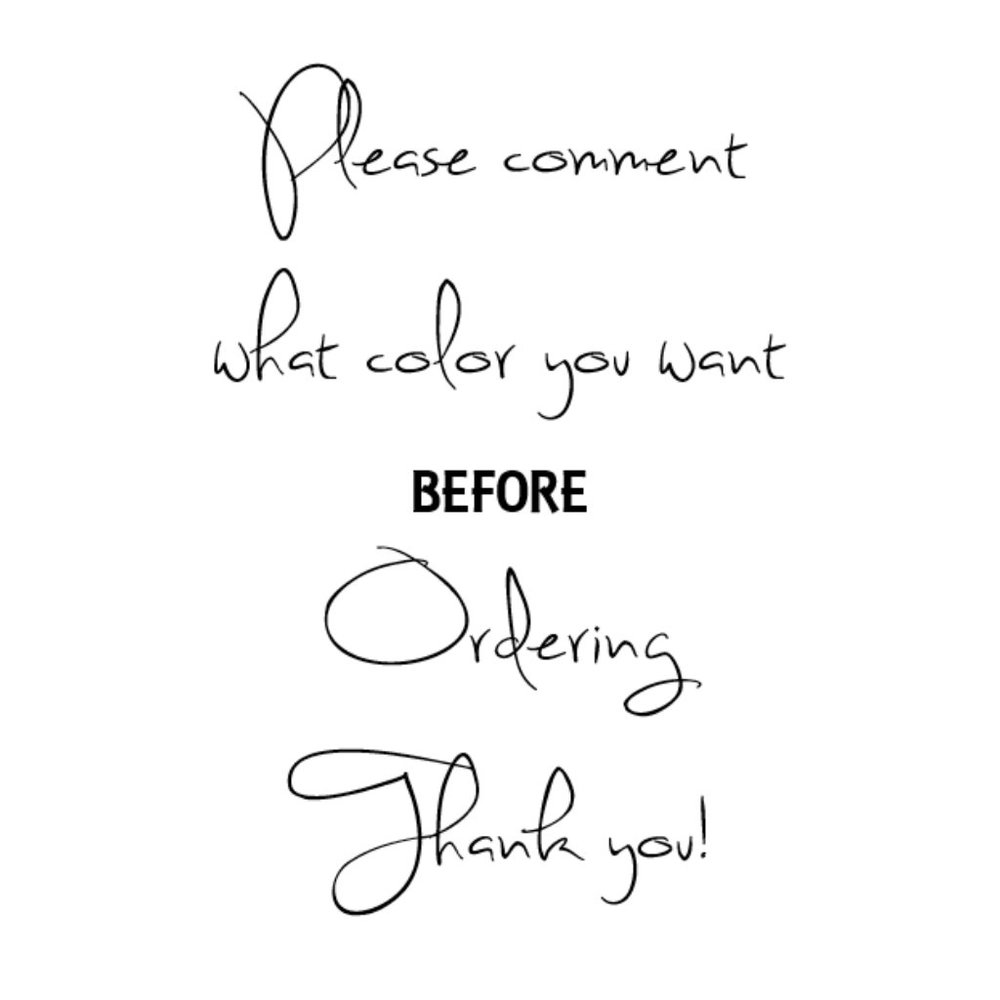 Please comment
what color you want
BEFORE
Ordering
Thank you!